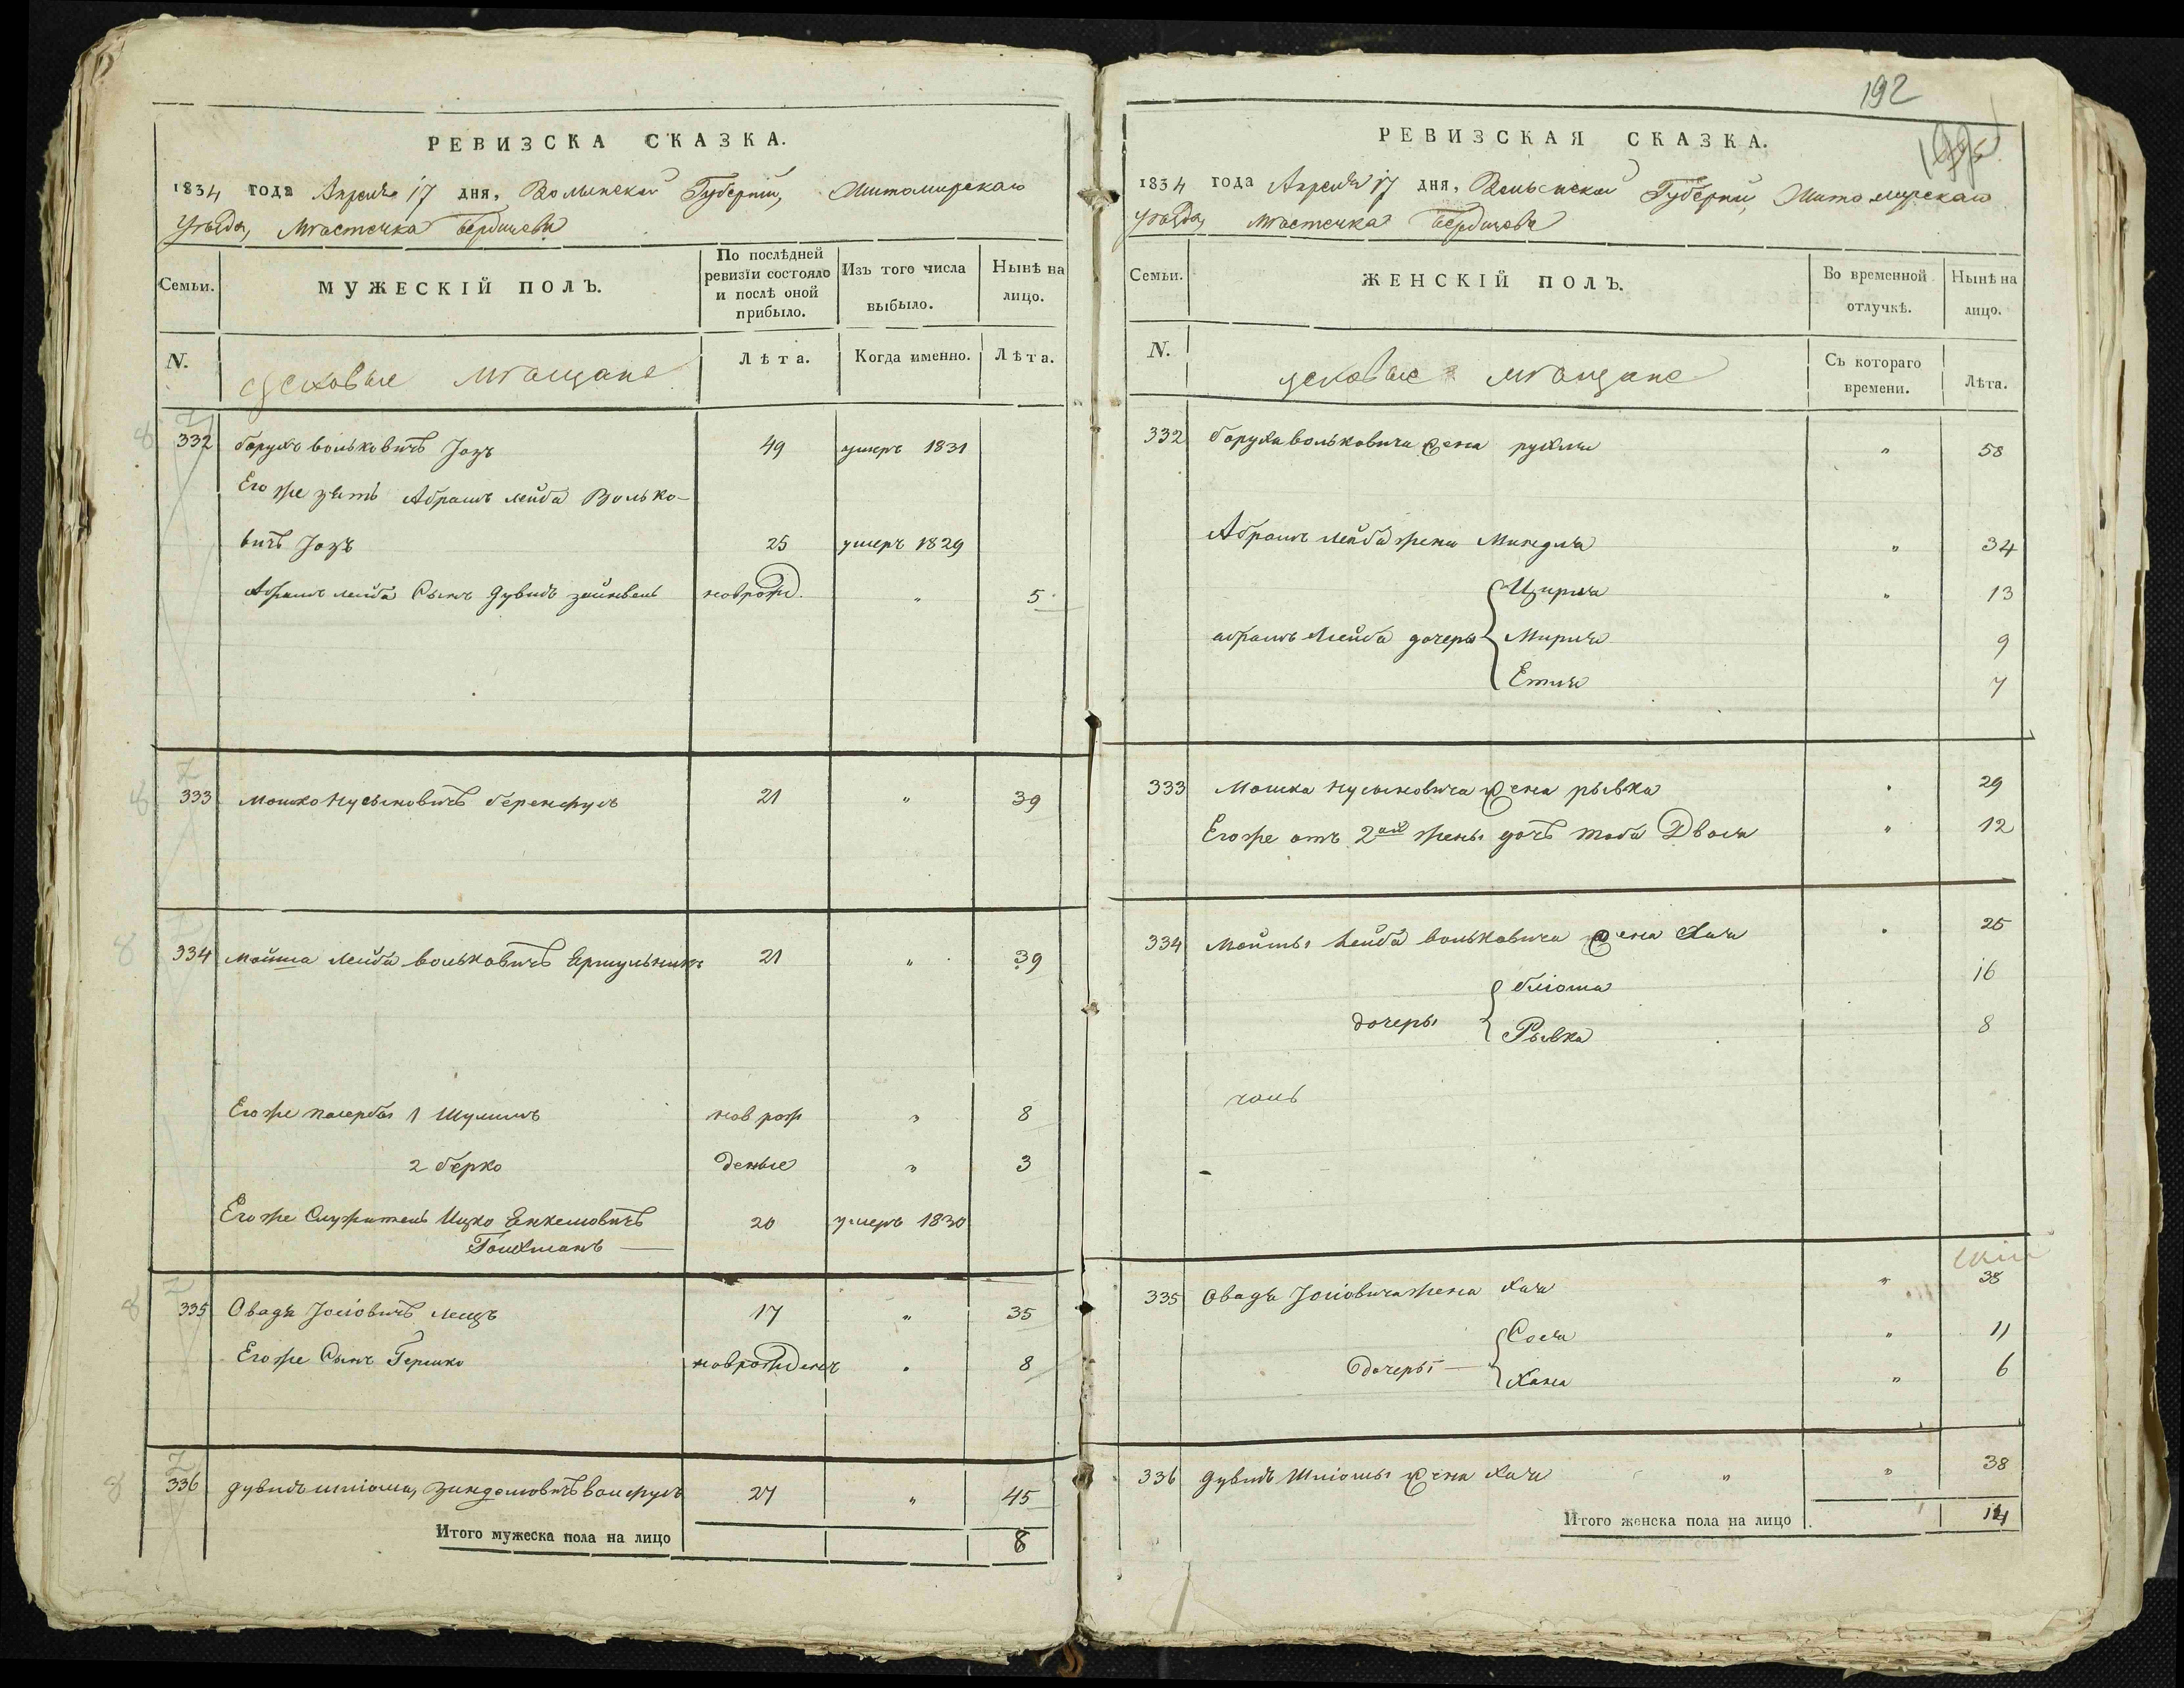 РЕВИЗСКА СКАЗКА.
1834 года Апреля 17 дня, Волынской Губернии, Житомирскаго
Уѣзда, Мѣстечка Бердичева
Семьи.
МУЖЕСКІЙ ПОЛЪ.
По послѣдней ревизіи состояло и послѣ оной прибыло.
Изъ того числа выбыло.
Нынѣ на лицо.
N.
цеховые мѣщане
Лѣта.
Когда именно.
Лѣта.
332 Борухъ Вольковичъ Јозъ 49 умеръ 1831
Его же зять Абрамъ ЛейбаВолько-
вичъ Јозъ 25 умеръ 1829
Абрамъ Лейба Сынъ Дувидъ Зейнвель новрожд. " 5
333 Мошко Нусыновичъ 21 " 39
334 Мойша Лейба Вольковичъ 21 " 39
Его же 1 Шулимъ новрож " 8
2 Берко денные " 3
Его же Служитель Ицко Енкелювичъ 20 умеръ 1830
Гоихманъ
335 Овадъ Јосіовичъ Лещъ 17 " 35
Его же Сынъ Гершко новрожденъ " 8
336 Дувидъ Шліома, 27 " 45
Итого мужеска пола на лицо 8
192
РЕВИЗСКАЯ СКАЗКА.
1834 года Апреля 17 дня, Волынской Губернии, Житомирскаго
Уѣзда, Мѣстечка Бердичева
Семьи.
ЖЕНСКІЙ ПОЛЪ.
Во временной отлучкѣ.
Нынѣ на лицо.
N.
цеховые мѣщане
Съ котораго времени.
Лѣта.
332 Боруха Вольковича жена Рухля " 58
Абрамъ Лейба жена Миндля " 34
Цирля " 13
Абрамъ Лейба дочеры Мирля 9
Етля 7
333 Мошка Нусыновича жена Рывка " 29
Его же отъ 2ой жены дочъ Тоба Двося " 12
334 Мойшы Лейба Вольковича жена Хая " 25
Бліома 16
дочеры
Рывка 8
335 Овадъ Јосіовича жена Хая " 38
Сося " 11
дочеры
Хана " 6
336 Дувидъ Шліомы жена Хая " " 38
Итого женска пола на лицо 14